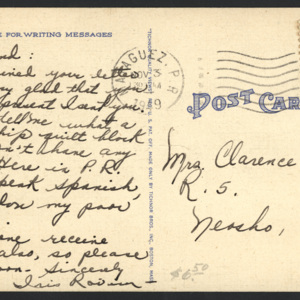 E FOR WRITING MESSAGES
nd :
ined your letter
my glad that you
present I sent you.
tell me what a
hip quilt block
on't have any
Here is P.R.
peak Spanish,
on my poor
ne receive
also, so please
on. Sincerely
Iris
MAYAGUEZ, P.R.
NOV 3
POST CAR
Mrs. Clarence
R. 5.
Neosho,
$6.50